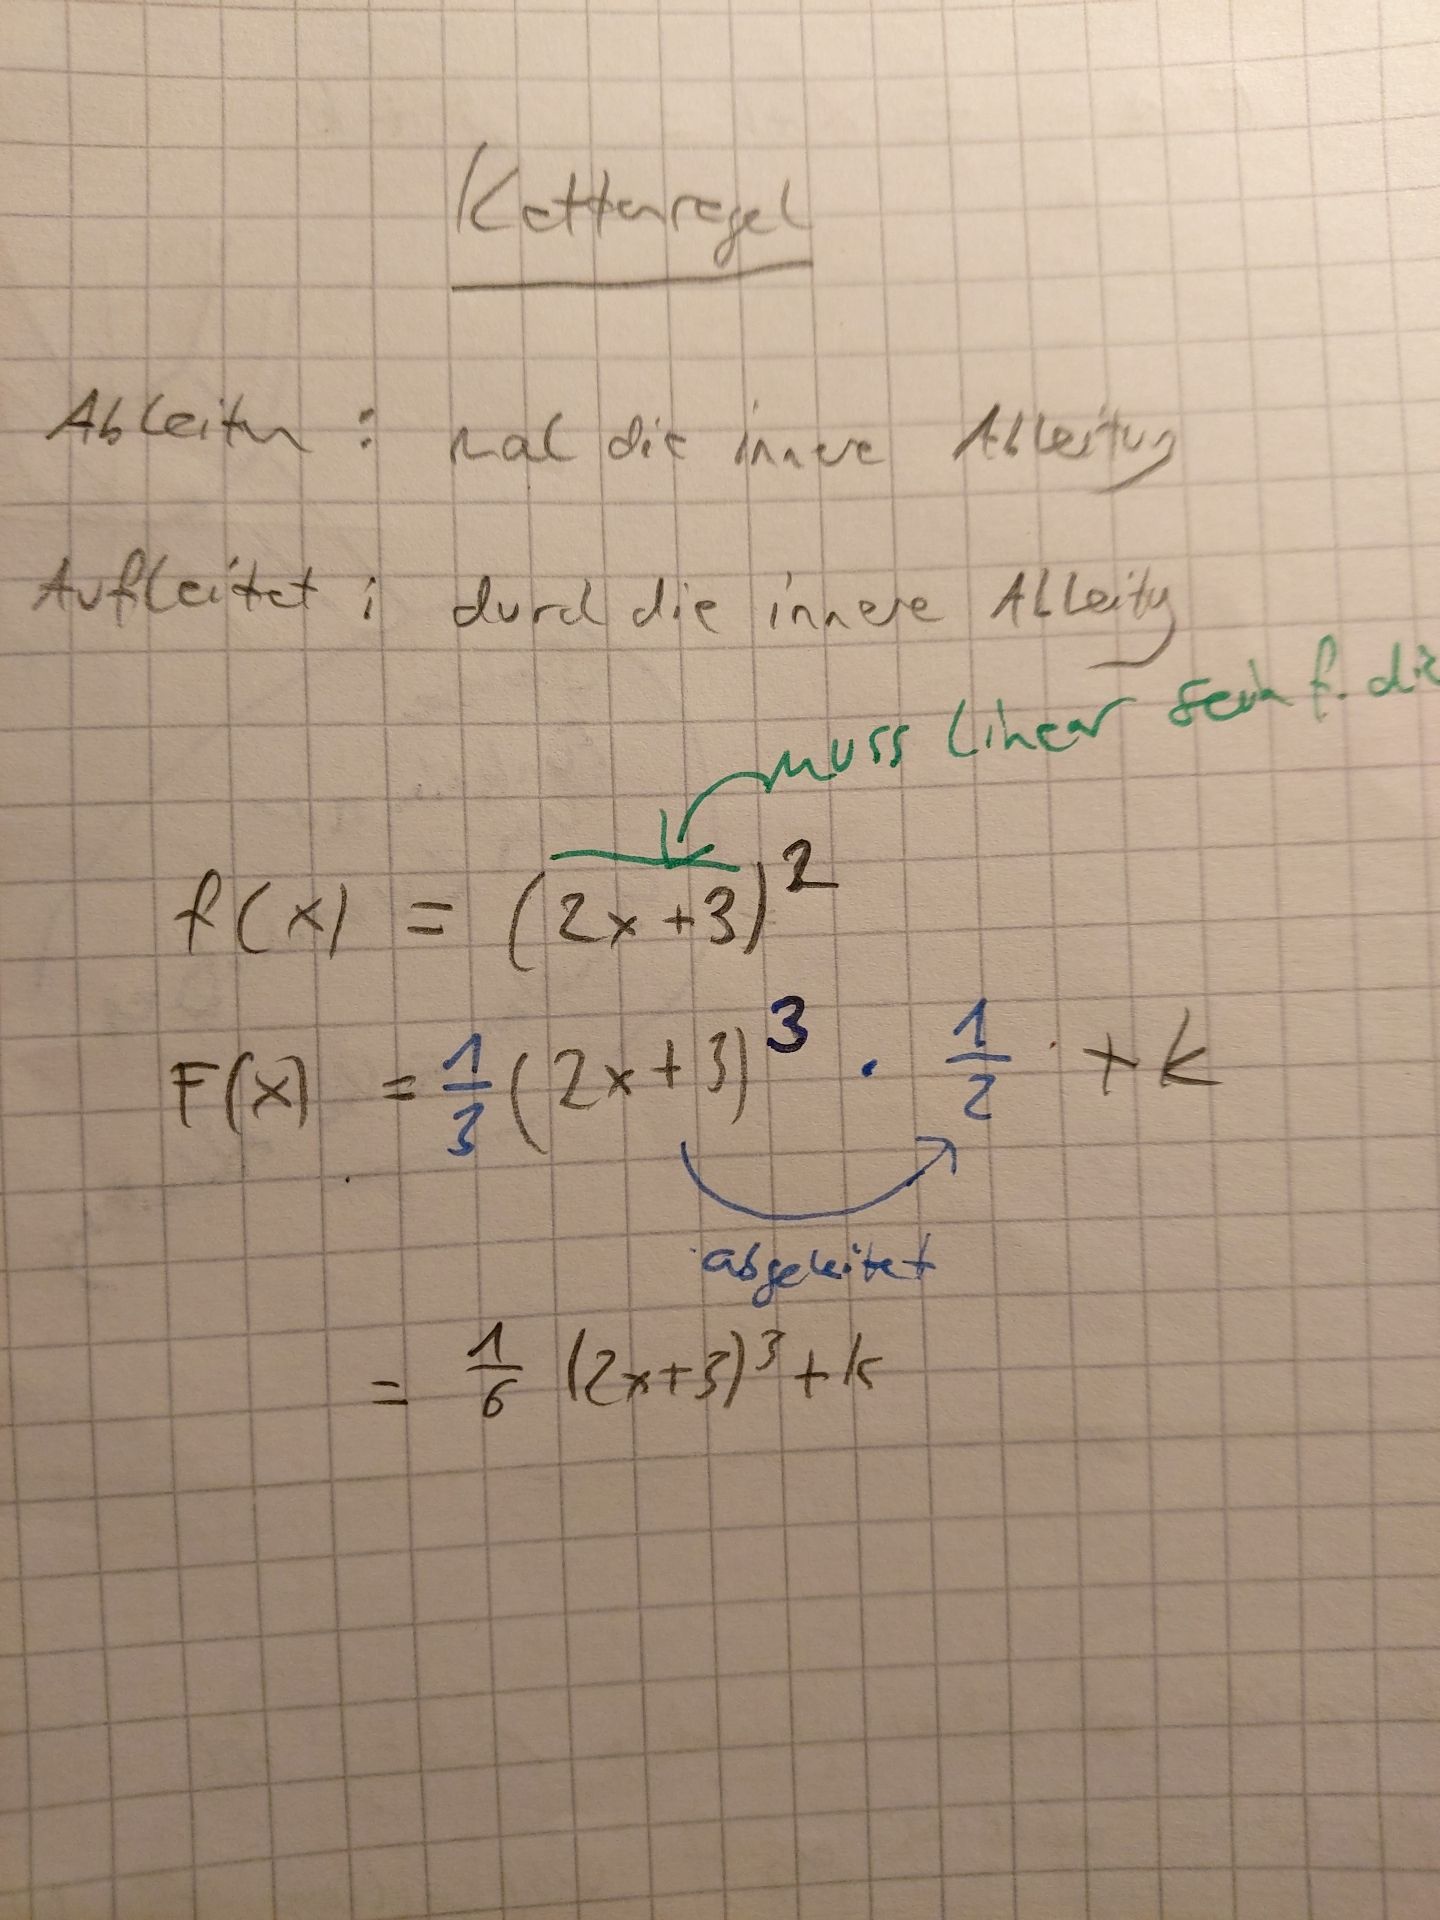 Kettenregel
Ableiten : mal die innere Ableitung
Aufleitet : durch die innere Ableitung
muss linear sein f. die
f(x) = (2x+3)²
F(x) = 1/3 (2x+3)³ · 1/2 + k
abgeleitet
= 1/6 (2x+3)³ + k